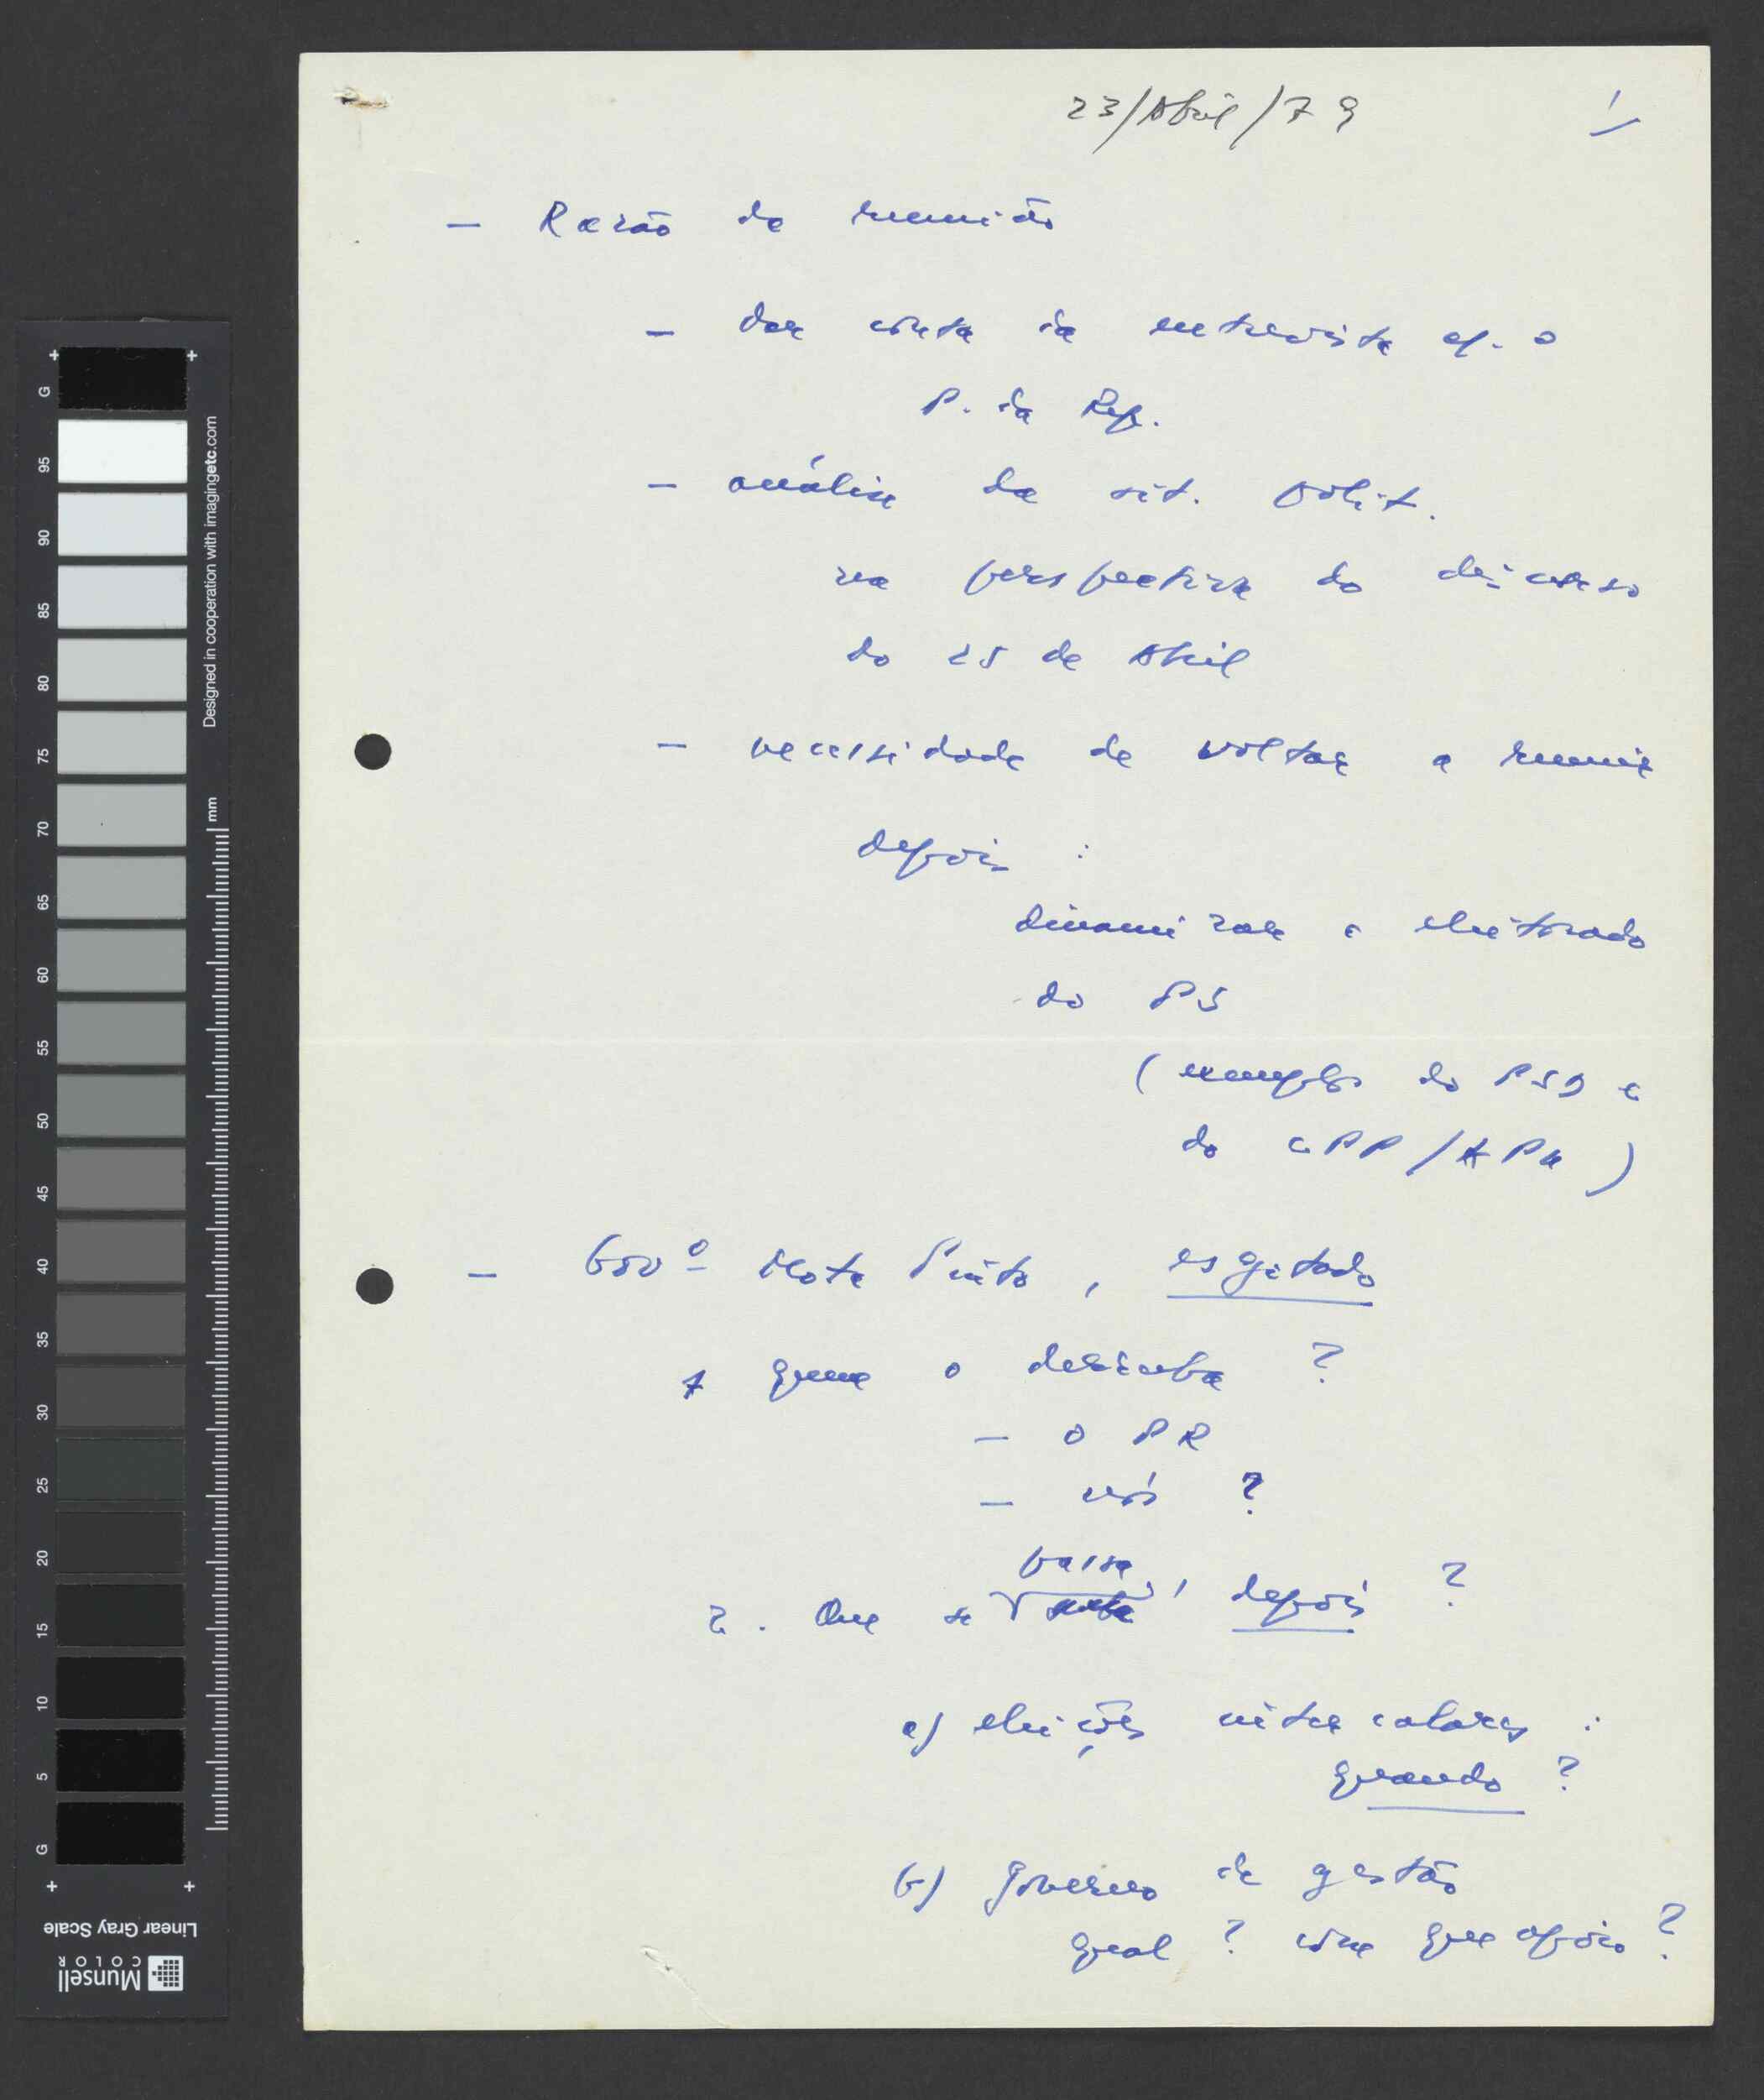 23/Abril/79
1/
- Razão da reunião
- dar conta da entrevista c/. o
P. da Rep.
- análise da sit. polit.
na perspectiva do discurso
do 25 de Abril
- necessidade de voltar a reunir
depois :
dinamizar o eleitorado
do PS
(exemplo do PSD e
do PCP/APU)
- Govº Mota Pinto, esgotado
1 quem o derruba ?
- o PR
- nós ?
2. Que se passa, depois ?
a) eleições intercalares :
quando ?
b) governo de gestão
qual ? com que apoio ?
G
95
90
85
80
75
70
65
60
55
50
45
40
35
30
25
20
15
10
5
G
Designed in cooperation with imagingetc.com
mm
Linear Gray Scale
Munsell
COLOR